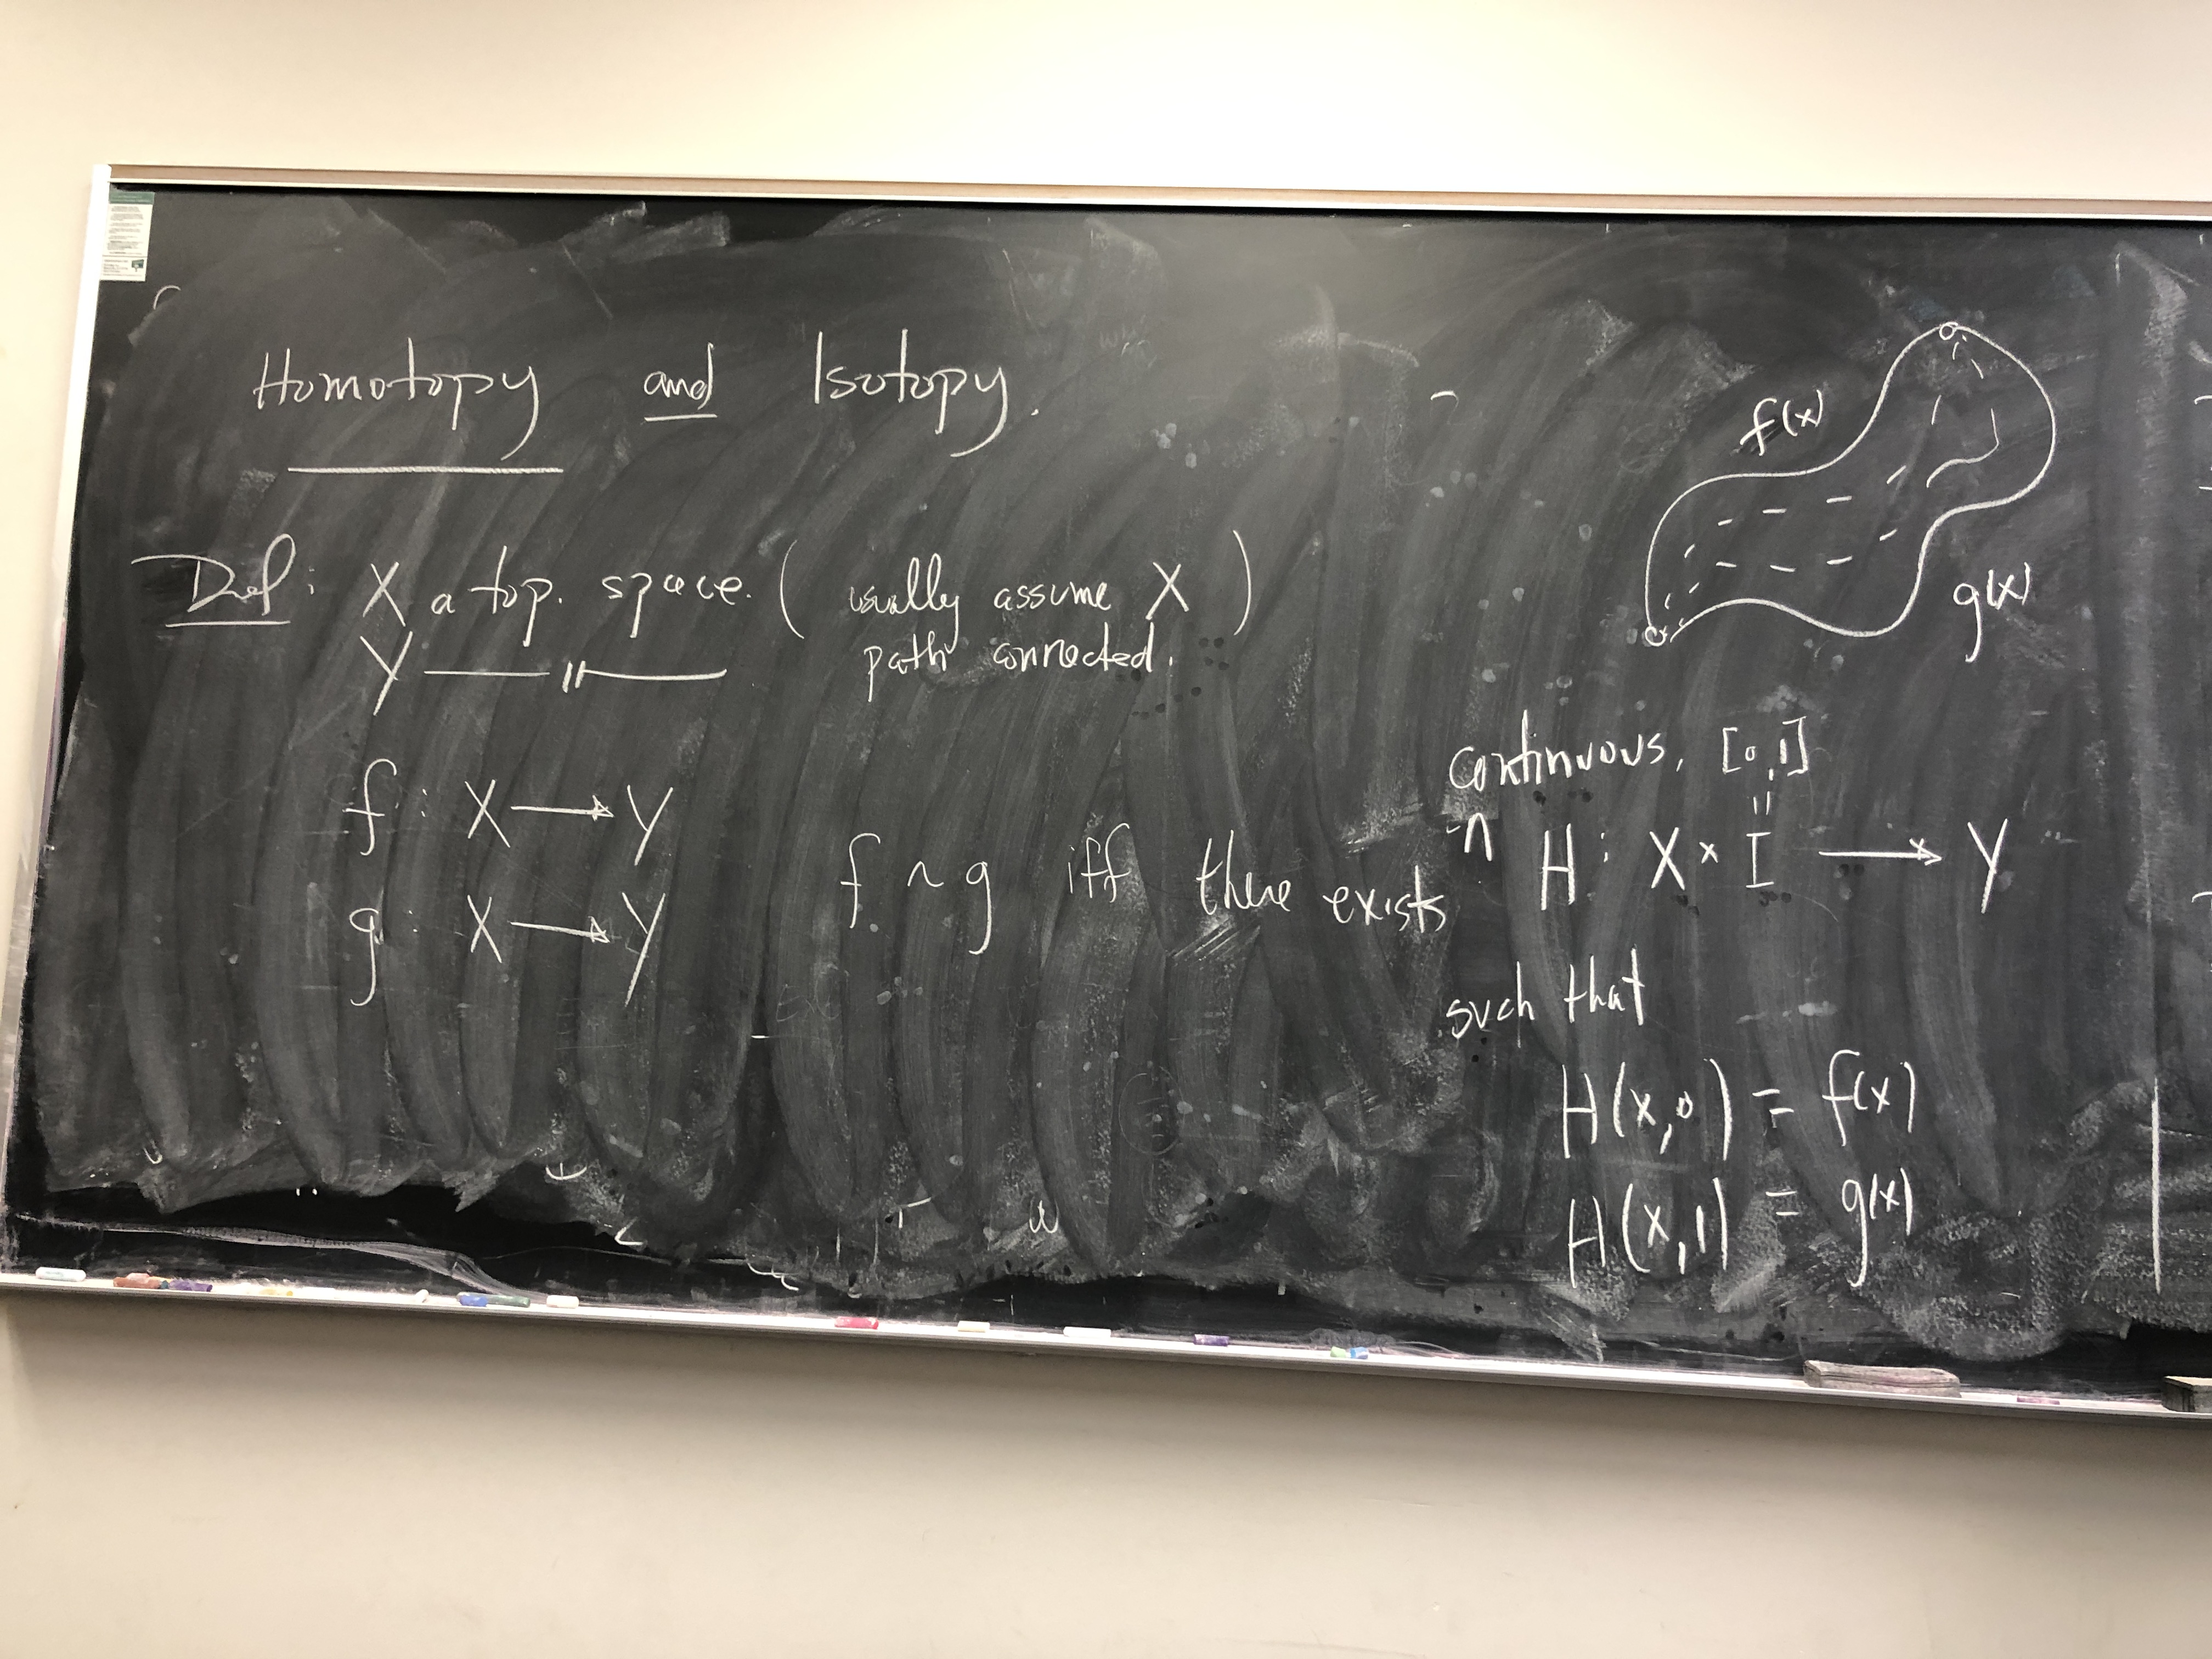 Homotopy and Isotopy.
Def: X a top. space. (usually assume X path connected.)
Y —— 〃 ——
f: X → Y
g: X → Y
f ~ g iff there exists
continuous, [0,1]
H: X × I → Y
such that
H(x,0) = f(x)
H(x,1) = g(x)
f(x)
g(x)